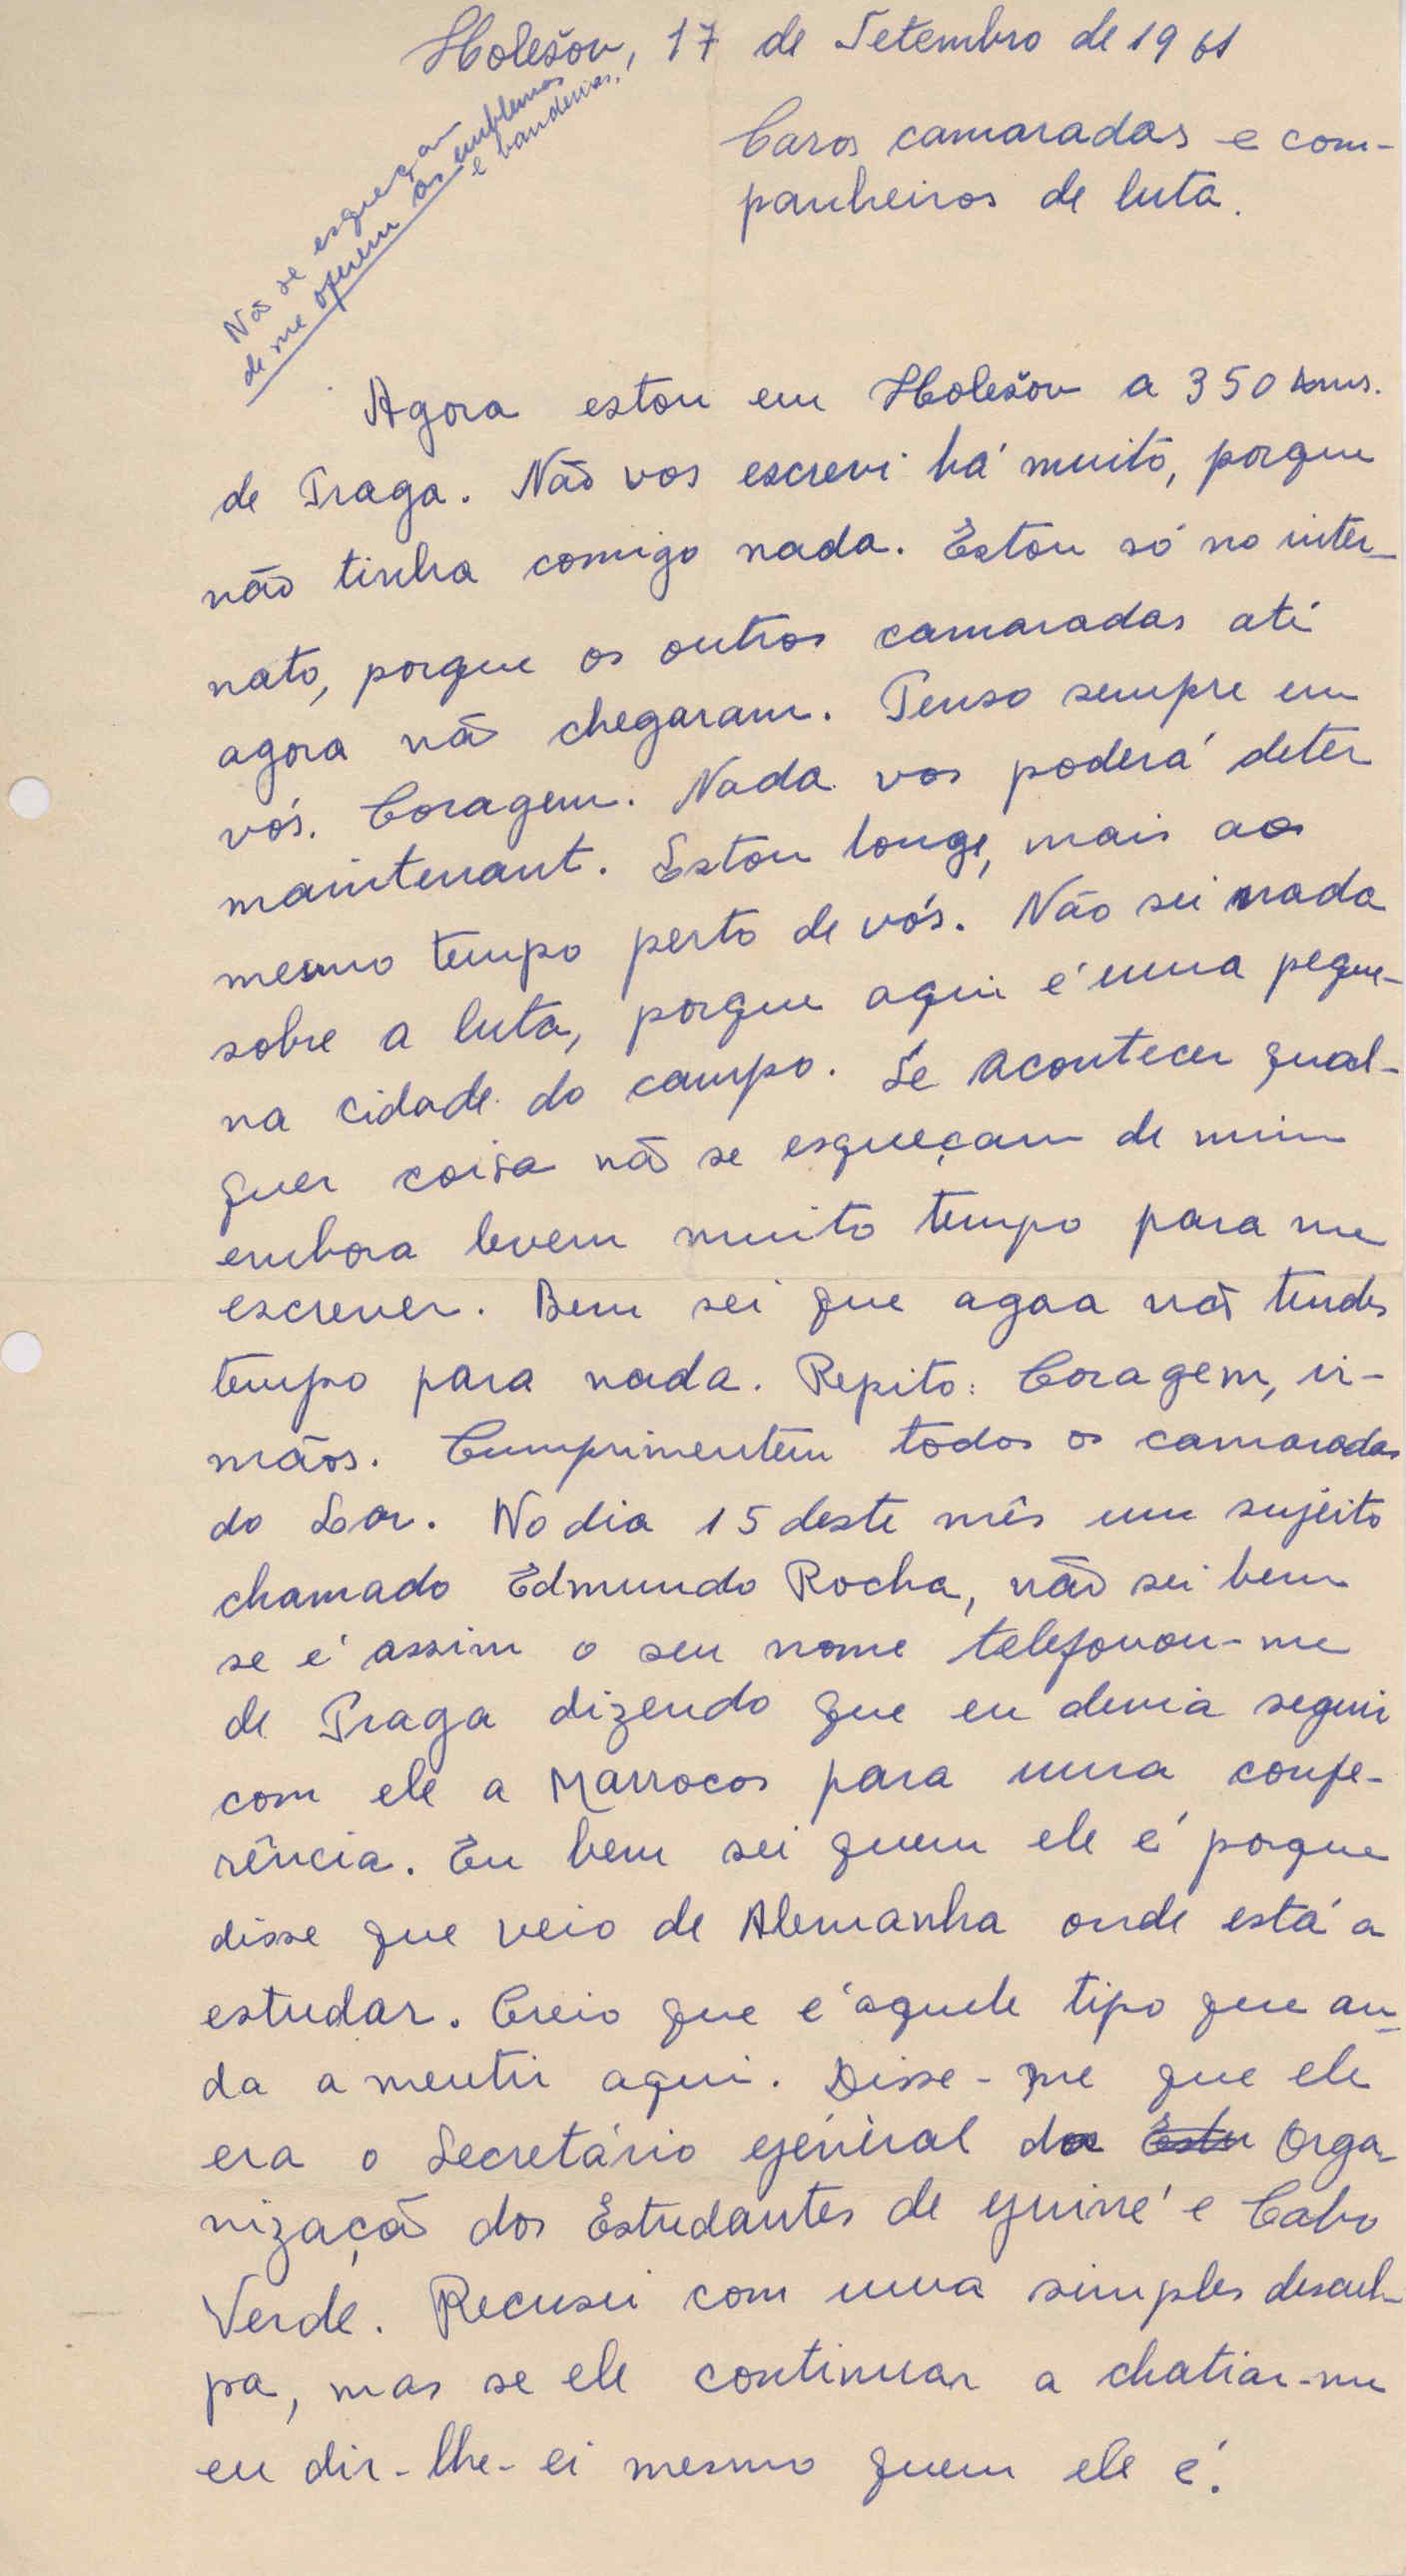 Holešov, 17 de Setembro de 1961
Não se esqueçam
de me os emblemas
e bandeiras.
Caros camaradas e com-
panheiros de luta.
Agora estou em Holešov a 350 kms.
de Praga. Não vos escrevi há muito, porque
não tinha comigo nada. Estou só no inter-
nato, porque os outros camaradas até
agora não chegaram. Penso sempre em
vós. Coragem. Nada vos poderá deter
maintenant. Estou longe, mais ao
mesmo tempo perto de vós. Não sei nada
sobre a luta, porque aqui é uma peque-
na cidade do campo. Se acontecer qual-
quer coisa não se esqueçam de mim
embora levem muito tempo para me
escrever. Bem sei que agora não tendes
tempo para nada. Repito: Coragem, ir-
mãos. Cumprimentem todos os camaradas
do Lar. No dia 15 deste mês um sujeito
chamado Edmundo Rocha, não sei bem
se é assim o seu nome telefonou-me
de Praga dizendo que eu devia seguir
com ele a Marrocos para uma confe-
rência. Eu bem sei quem ele é porque
disse que veio de Alemanha onde está a
estudar. Creio que é aquele tipo que an-
da a mentir aqui. Disse-me que ele
era o Secretário géneral da Estu Orga-
nização dos Estudantes de Guiné e Cabo
Verde. Recusei com uma simples descul-
pa, mas se ele continuar a chatiar-me
eu dir-lhe-ei mesmo quem ele é.